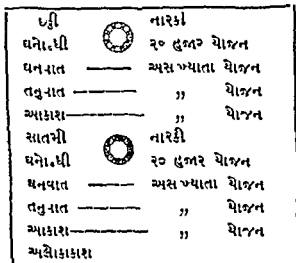 છઠ્ઠી નારકી
ઘનોદધી ૨૦ હજાર યોજન
ઘનવાત અસખ્યાતા યોજન
તનુવાત ,, યોજન
આકાશ ,, યોજન
સાતમી નારકી
ઘનોદધી ૨૦ હજાર યોજન
ઘનવાત અસખ્યાતા યોજન
તનુવાત ,, યોજન
આકાશ ,, યોજન
અલોકાકાશ